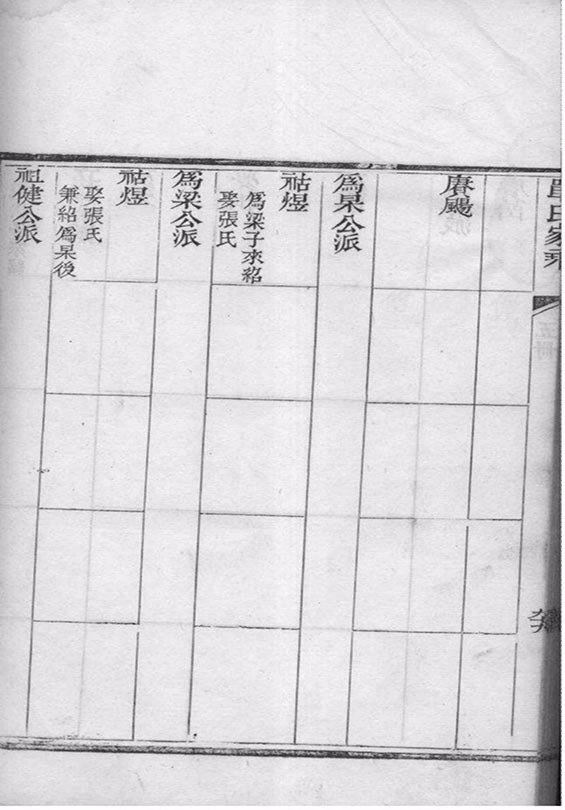 氏家乘
賡颺
為杲公派
祜煜
為梁子來紹
娶張氏
為梁公派
祜煜
娶張氏
兼紹為杲後
祖健公派